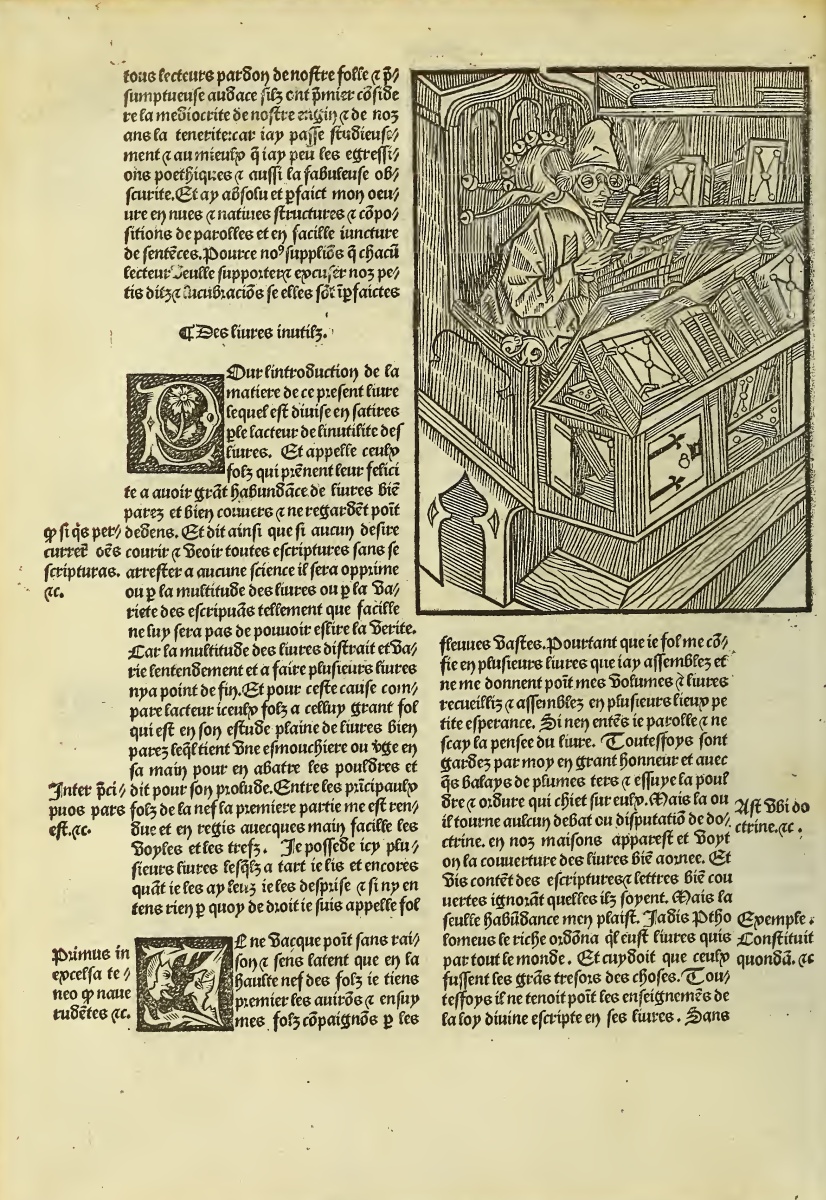 tous lecteurs pardon de nostre folle ⁊ p̄/
sumptueuse audace silz ont p̄mier cōside
re la mediocrite de nostre engin ⁊ de noz
ans la tenerite: car iay passe studieuse/
ment ⁊ au mieulx q̄ iay peu les egressi/
ons poethiques ⁊ aussi la fabuleuse ob/
scurite. Et ay absolu et ꝑfaict mon oeu/
ure en nues ⁊ natiues structures ⁊ cōpo/
sitions de parolles et en facille iuncture
de sentēces. Pource noꝰ suppliōs q̄ chacū
lecteur veulle supporter ⁊ excuser noz pe/
tis ditz ⁊ lucubraciōs se elles sōt īꝑfaictes
¶ Des liures inutilz.
POur lintroduction de la
matiere de ce present liure
lequel est diuise en satires
ꝑ le lacteur de linutilite des
liures. Et appelle ceulx
folz qui prēnent leur felici
te a auoir grāt habundāce de liures biē
parez et bien couuers ⁊ ne regardēt poīt
dedens. Et dit ainsi que si aucun desire
courir ⁊ veoir toutes escriptures sans se
arrester a aucune science il sera opprime
ou ꝑ la multitude des liures ou ꝑ la va/
riete des escripuās tellement que facille
ne luy sera pas de pouuoir eslire la verite.
Car la multitude des liures distrait et va/
rie lentendement et a faire plusieurs liures
nya point de fin. Et pour ceste cause com/
pare lacteur iceulx folz a celluy grant fol
qui est en son estude plaine de liures bien
parez leq̄l tient vne esmouchiere ou v̄ge en
sa main pour en abatre les pouldres et
dit pour son prolude. Entre les pricipaulx
folz de la nef la premiere partie me est ren/
due et en regis auecques main facille les
voyles et les trefz. Je possede icy plu/
sieurs liures lesq̄lz a tart ie lis et encores
quāt ie les ay leuz ie les desprise ⁊ si ny en
tens rien ꝑ quoy de droit ie suis appelle fol
CE ne vacque poīt sans rai/
son ⁊ sens latent que en la
haulte nef des folz ie tiens
premier les auirōs ⁊ ensuy
mes folz cōpaignōs ꝑ les
ꝙ si q̄s per/
currēt oēs
scripturas.
⁊c.
Inter p̄ci/
puos pars
est. ⁊c.
Primus in
excelsa te/
neo ꝙ naue
rudētes ⁊c.
fleuues vastes. Pourtant que ie fol me cō/
fie en plusieurs liures que iay assemblez et
ne me donnent poīt mes volumes ⁊ liures
recueilliz ⁊ assemblez en plusieurs lieux pe
tite esperance. Si nen entēs ie parolle ⁊ ne
scay la pensee du liure. Toutessoys sont
gardez par moy en grant honneur et auec
q̄s balays de plumes ters ⁊ essuye la poul
dre ⁊ ordure qui chiet sur eulx. Mais la ou
il tourne aulcun debat ou disputatiō de do/
ctrine. en noz maisons apparest et voyt
on la couuerture des liures biē aornee. Et
vis contēt des escriptures ⁊ lettres biē cou
uertes ignorāt quelles ilz soyent. Mais la
seulle habūdance men plaist. Jadis Ptho
lomeus le riche ordōna q̄l eust liures quis
par tout le monde. Et cuydoit que ceulx
fussent les grās tresors des choses. Tou/
tessoys il ne tenoit poīt les enseignemēs de
la loy diuine escripte en ses liures. Sans
Ast vbi do
ctrine. ⁊c.
Exemple.
Constituit
quondā. ⁊c